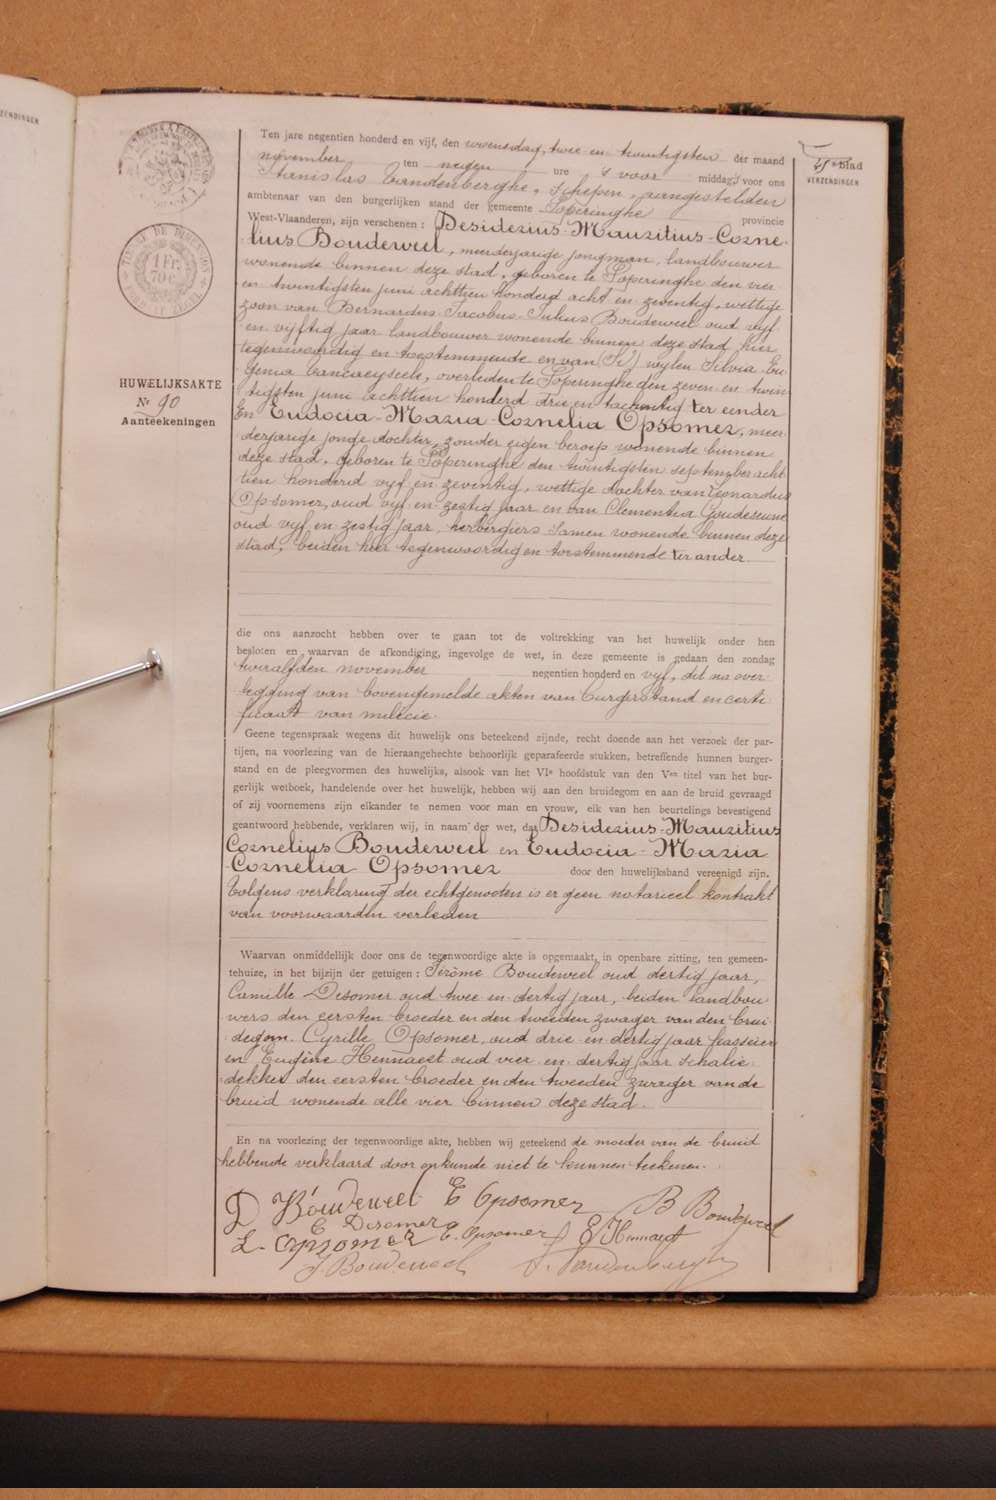 ZENDINGEN
TIMBRE DE DIMENSION
1 Fr.
70 c
HUWELIJKSAKTE
Nr 90
Aanteekeningen
45e blad
VERZENDINGEN
Ten jare negentien honderd en vijf, den woensdag, twee en twintigsten der maand
november ten negen ure 's voor middags, voor ons
Stanislas Vandenberghe, schepen, aangestelden
ambtenaar van den burgerlijken stand der gemeente Poperinghe provincie
West-Vlaanderen, zijn verschenen: Desiderius-Mauritius-Corne-
lius Boudeweel, meerderjarige jongman, landbouwer
wonende binnen deze stad, geboren te Poperinghe den vier
en twintigsten juni achttien honderd acht en zeventig, wettige
zoon van Bernardus-Jacobus-Julius Boudeweel oud vijf
en vijftig jaar landbouwer wonende binnen deze stad, hier
tegenwoordig en toestemmende en van wijlen Silvia-Eu-
genia overleden te Poperinghe den zeven en twin-
tigsten juni achttien honderd drie en tachentig ter eender
En Eudocia-Maria-Cornelia Opsomer, meer-
derjarige jonge dochter, zonder eigen beroep wonende binnen
deze stad, geboren te Poperinghe den twintigsten september acht-
tien honderd vijf en zeventig, wettige dochter van Leonardus
Opsomer, oud vijf en zestig jaar en van Clementia Goudeseune
oud vijf en zestig jaar, herbergiers samen wonende binnen deze
stad, beiden hier tegenwoordig en toestemmende ter ander
die ons aanzocht hebben over te gaan tot de voltrekking van het huwelijk onder hen
besloten en waarvan de afkondiging, ingevolge de wet, in deze gemeente is gedaan den zondag
twaalfden november negentien honderd en vijf, dit na over-
legging van bovengemelde akten van burgerstand en certi-
ficaat van milicie.
Geene tegenspraak wegens dit huwelijk ons beteekend zijnde, recht doende aan het verzoek der par-
tijen, na voorlezing van de hieraangehechte behoorlijk geparafeerde stukken, betreffende hunnen burger-
stand en de pleegvormen des huwelijks, alsook van het VIe hoofdstuk van den Ven titel van het bur-
gerlijk wetboek, handelende over het huwelijk, hebben wij aan den bruidegom en aan de bruid gevraagd
of zij voornemens zijn elkander te nemen voor man en vrouw, elk van hen beurtelings bevestigend
geantwoord hebbende, verklaren wij, in naam der wet, dat Desiderius-Mauritius
Cornelius Boudeweel en Eudocia-Maria
-Cornelia Opsomer door den huwelijksband vereenigd zijn.
Volgens verklaring der echtgenooten is er geen notarieel kontrakt
van voorwaarden verleden
Waarvan onmiddellijk door ons de tegenwoordige akte is opgemaakt, in openbare zitting, ten gemeen-
tehuize, in het bijzijn der getuigen: Jérôme Boudeweel oud dertig jaar,
Camille Desomer oud twee en dertig jaar, beiden landbou-
wers den eersten broeder en den tweeden zwager van den brui-
degom. Cyrille Opsomer, oud drie en dertig jaar kasseier
en Eugène Hennaert oud vier en dertig jaar schalie-
dekker den eersten broeder en den tweeden zwager van de
bruid wonende alle vier binnen deze stad.
En na voorlezing der tegenwoordige akte, hebben wij geteekend de moeder van de bruid
hebbende verklaard door onkunde niet te kunnen teekenen.
D Boudeweel E Opsomer B Boudeweel
C Desomer
L. Opsomer C. Opsomer E Hennaert
J Boudeweel S. Vandenberghe